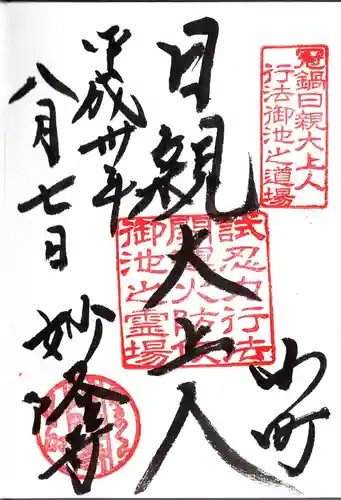 冠鍋日親大上人
行法御池之道場
小町
日親大上人
試忍力行法
御池之霊場
平成卅年
八月七日
妙隆寺